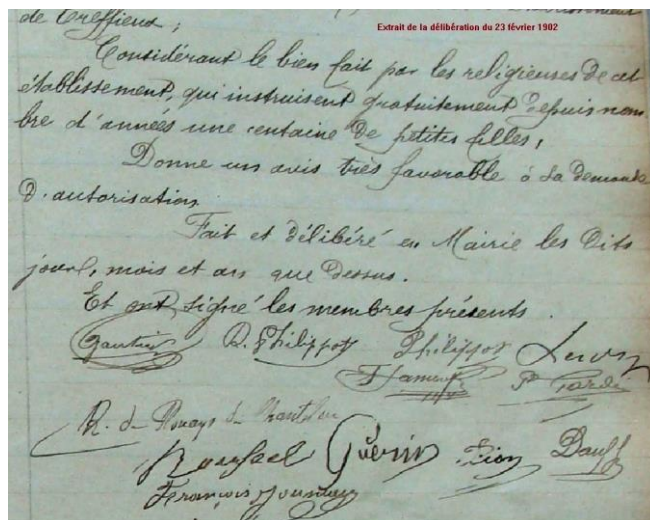 de Treffieux ;
Extrait de la délibération du 23 février 1902
Considérant le bien fait par les religieuses de cet
établissement, qui instruisent gratuitement depuis nom
bre d'années une centaine de petites filles,
Donne un avis très favorable à la demande
d'autorisation.
Fait et délibéré en Mairie les dits
jour, mois et an que dessus.
Et ont signé les membres présents.
Gautier R. Philippot Philippot
R. du
Roussel Guérin
François